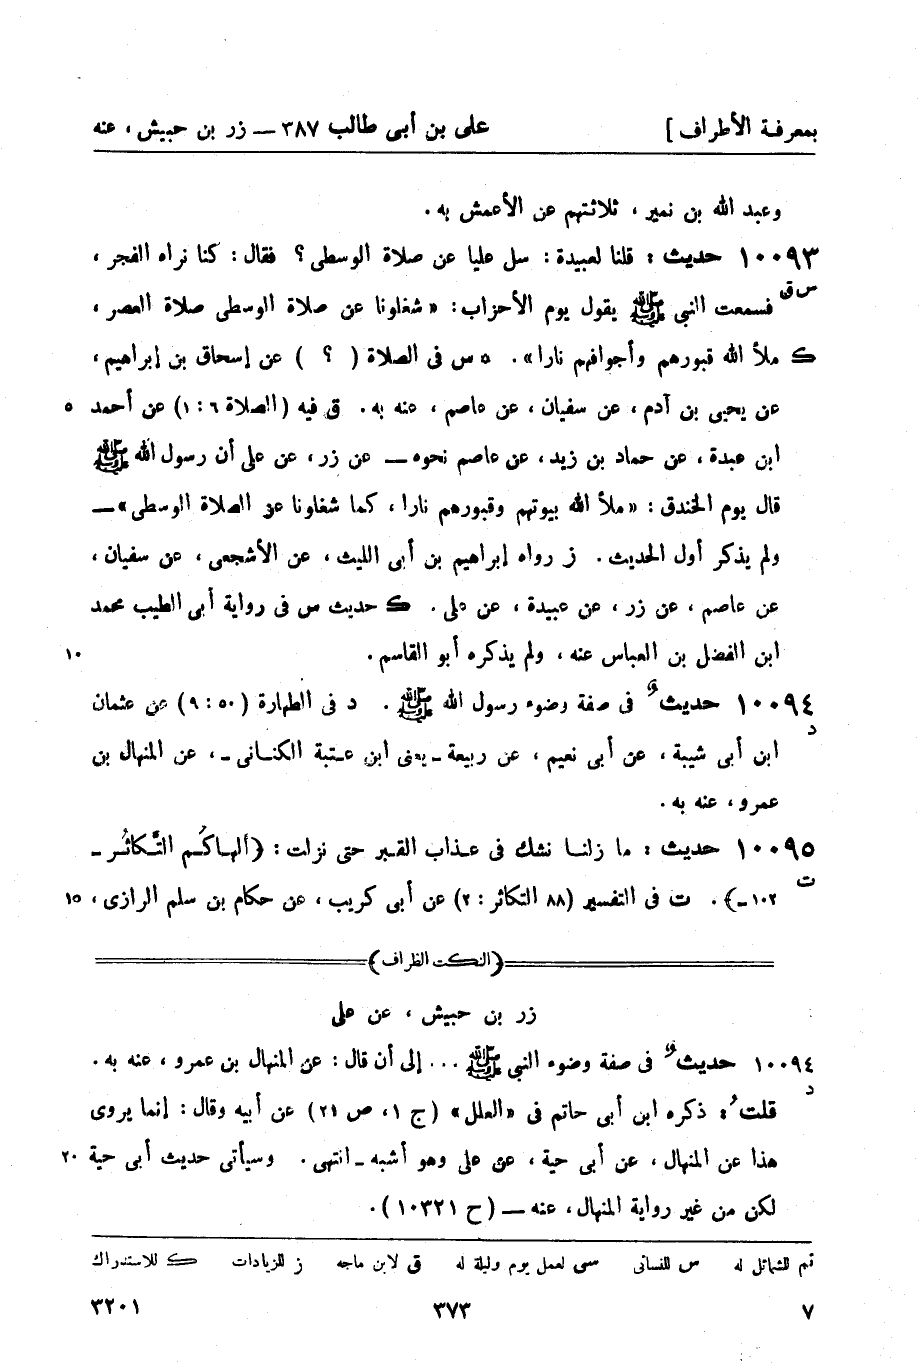 بمعرفة الأطراف ] على بن أبى طالب ٣٨٧ — زر بن حبيش ، عنه
وعبد الله بن نمير ، ثلاثتهم عن الأعمش به .
١٠٠٩٣ حديث : قلنا لعبيدة : سل عليا عن صلاة الوسطى ؟ فقال : كنا نراه الفجر ،
س ق فسمعت النبى ﷺ يقول يوم الأحزاب : « شغلونا عن صلاة الوسطى صلاة العصر ،
ك ملأ الله قبورهم وأجوافهم نارا » . ٥ س فى الصلاة ( ؟ ) عن إسحاق بن إبراهيم ،
عن يحيى بن آدم ، عن سفيان ، عن عاصم ، عنه به . ق فيه ( الصلاة ٦ : ١ ) عن أحمد ٥
ابن عبدة ، عن حماد بن زيد ، عن عاصم نحوه — عن زر ، عن على أن رسول الله ﷺ
قال يوم الخندق : « ملأ الله بيوتهم وقبورهم نارا ، كما شغلونا عن الصلاة الوسطى » —
ولم يذكر أول الحديث . ز رواه إبراهيم بن أبى الليث ، عن الأشجعى ، عن سفيان ،
عن عاصم ، عن زر ، عن عبيدة ، عن على . ك حديث س فى رواية أبى الطيب محمد
ابن الفضل بن العباس عنه ، ولم يذكره أبو القاسم . ١٠
١٠٠٩٤ حديث فى صفة وضوء رسول الله ﷺ . د فى الطهارة ( ٥٠ : ٩ ) عن عثمان
د
ابن أبى شيبة ، عن أبى نعيم ، عن ربيعة ـ يعنى ابن عتبة الكنانى ـ ، عن المنهال بن
عمرو ، عنه به .
١٠٠٩٥ حديث : ما زلنا نشك فى عذاب القبر حتى نزلت : ﴿ ألهاكُم التَّكاثُر ـ
ت ١٠٢ ـ ﴾ . ت فى التفسير ( ٨٨ التكاثر : ٢ ) عن أبى كريب ، عن حكام بن سلم الرازى ، ١٥
﴿ النكت الظراف ﴾
زر بن حبيش ، عن على
١٠٠٩٤ حديث فى صفة وضوء النبى ﷺ ... إلى أن قال : عن المنهال بن عمرو ، عنه به .
د
قلتُ : ذكره ابن أبى حاتم فى « العلل » ( ج ١ ، ص ٢١ ) عن أبيه وقال : إنما يروى
هذا عن المنهال ، عن أبى حية ، عن على وهو أشبه ـ انتهى . وسيأتى حديث أبى حية ٢٠
لكن من غير رواية المنهال ، عنه — ( ح ١٠٣٢١ ) .
تم للشمائل له س للنسائى سى لعمل يوم وليلة له ق لابن ماجه ز للزيادات ك للاستدراك
٧ ٣٧٣ ٣٢٠١